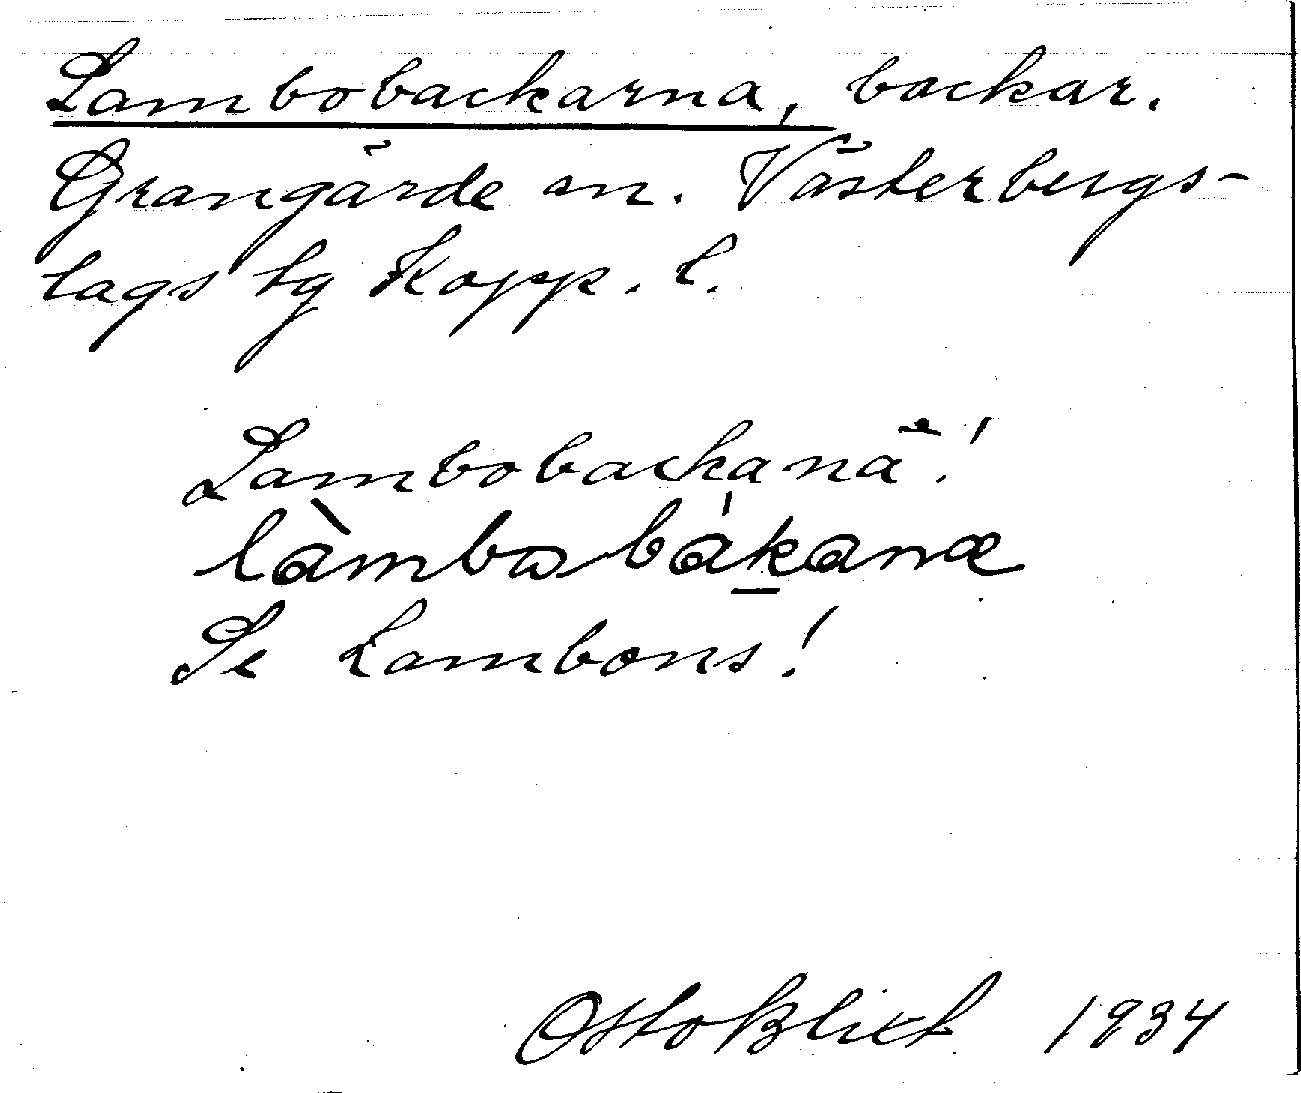 Lambobackarna, backar.
Grangärde sn. Västerbergs-
lags tg Kopp. l.
Lambobackanä!
làmbωbákanæ
Se Lambons!
Otto Blixt 1934